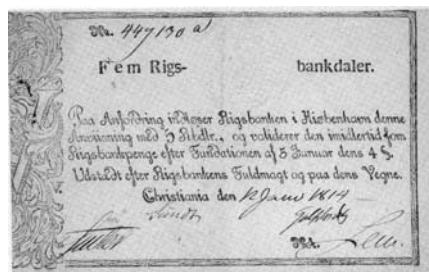 No. 447130 a
Fem Rigs- bankdaler.
Paa Anfordring indløser Rigsbanken i Kiøbenhavn denne
Anviisning med 5 Rbdlr., og validerer den imidlertid som
Rigsbankpenge efter Fundationen af 5 Januar dens 4 §.
Udstedt efter Rigsbankens Fuldmagt og paa dens Vegne.
Christiania den 12 Janu 1814